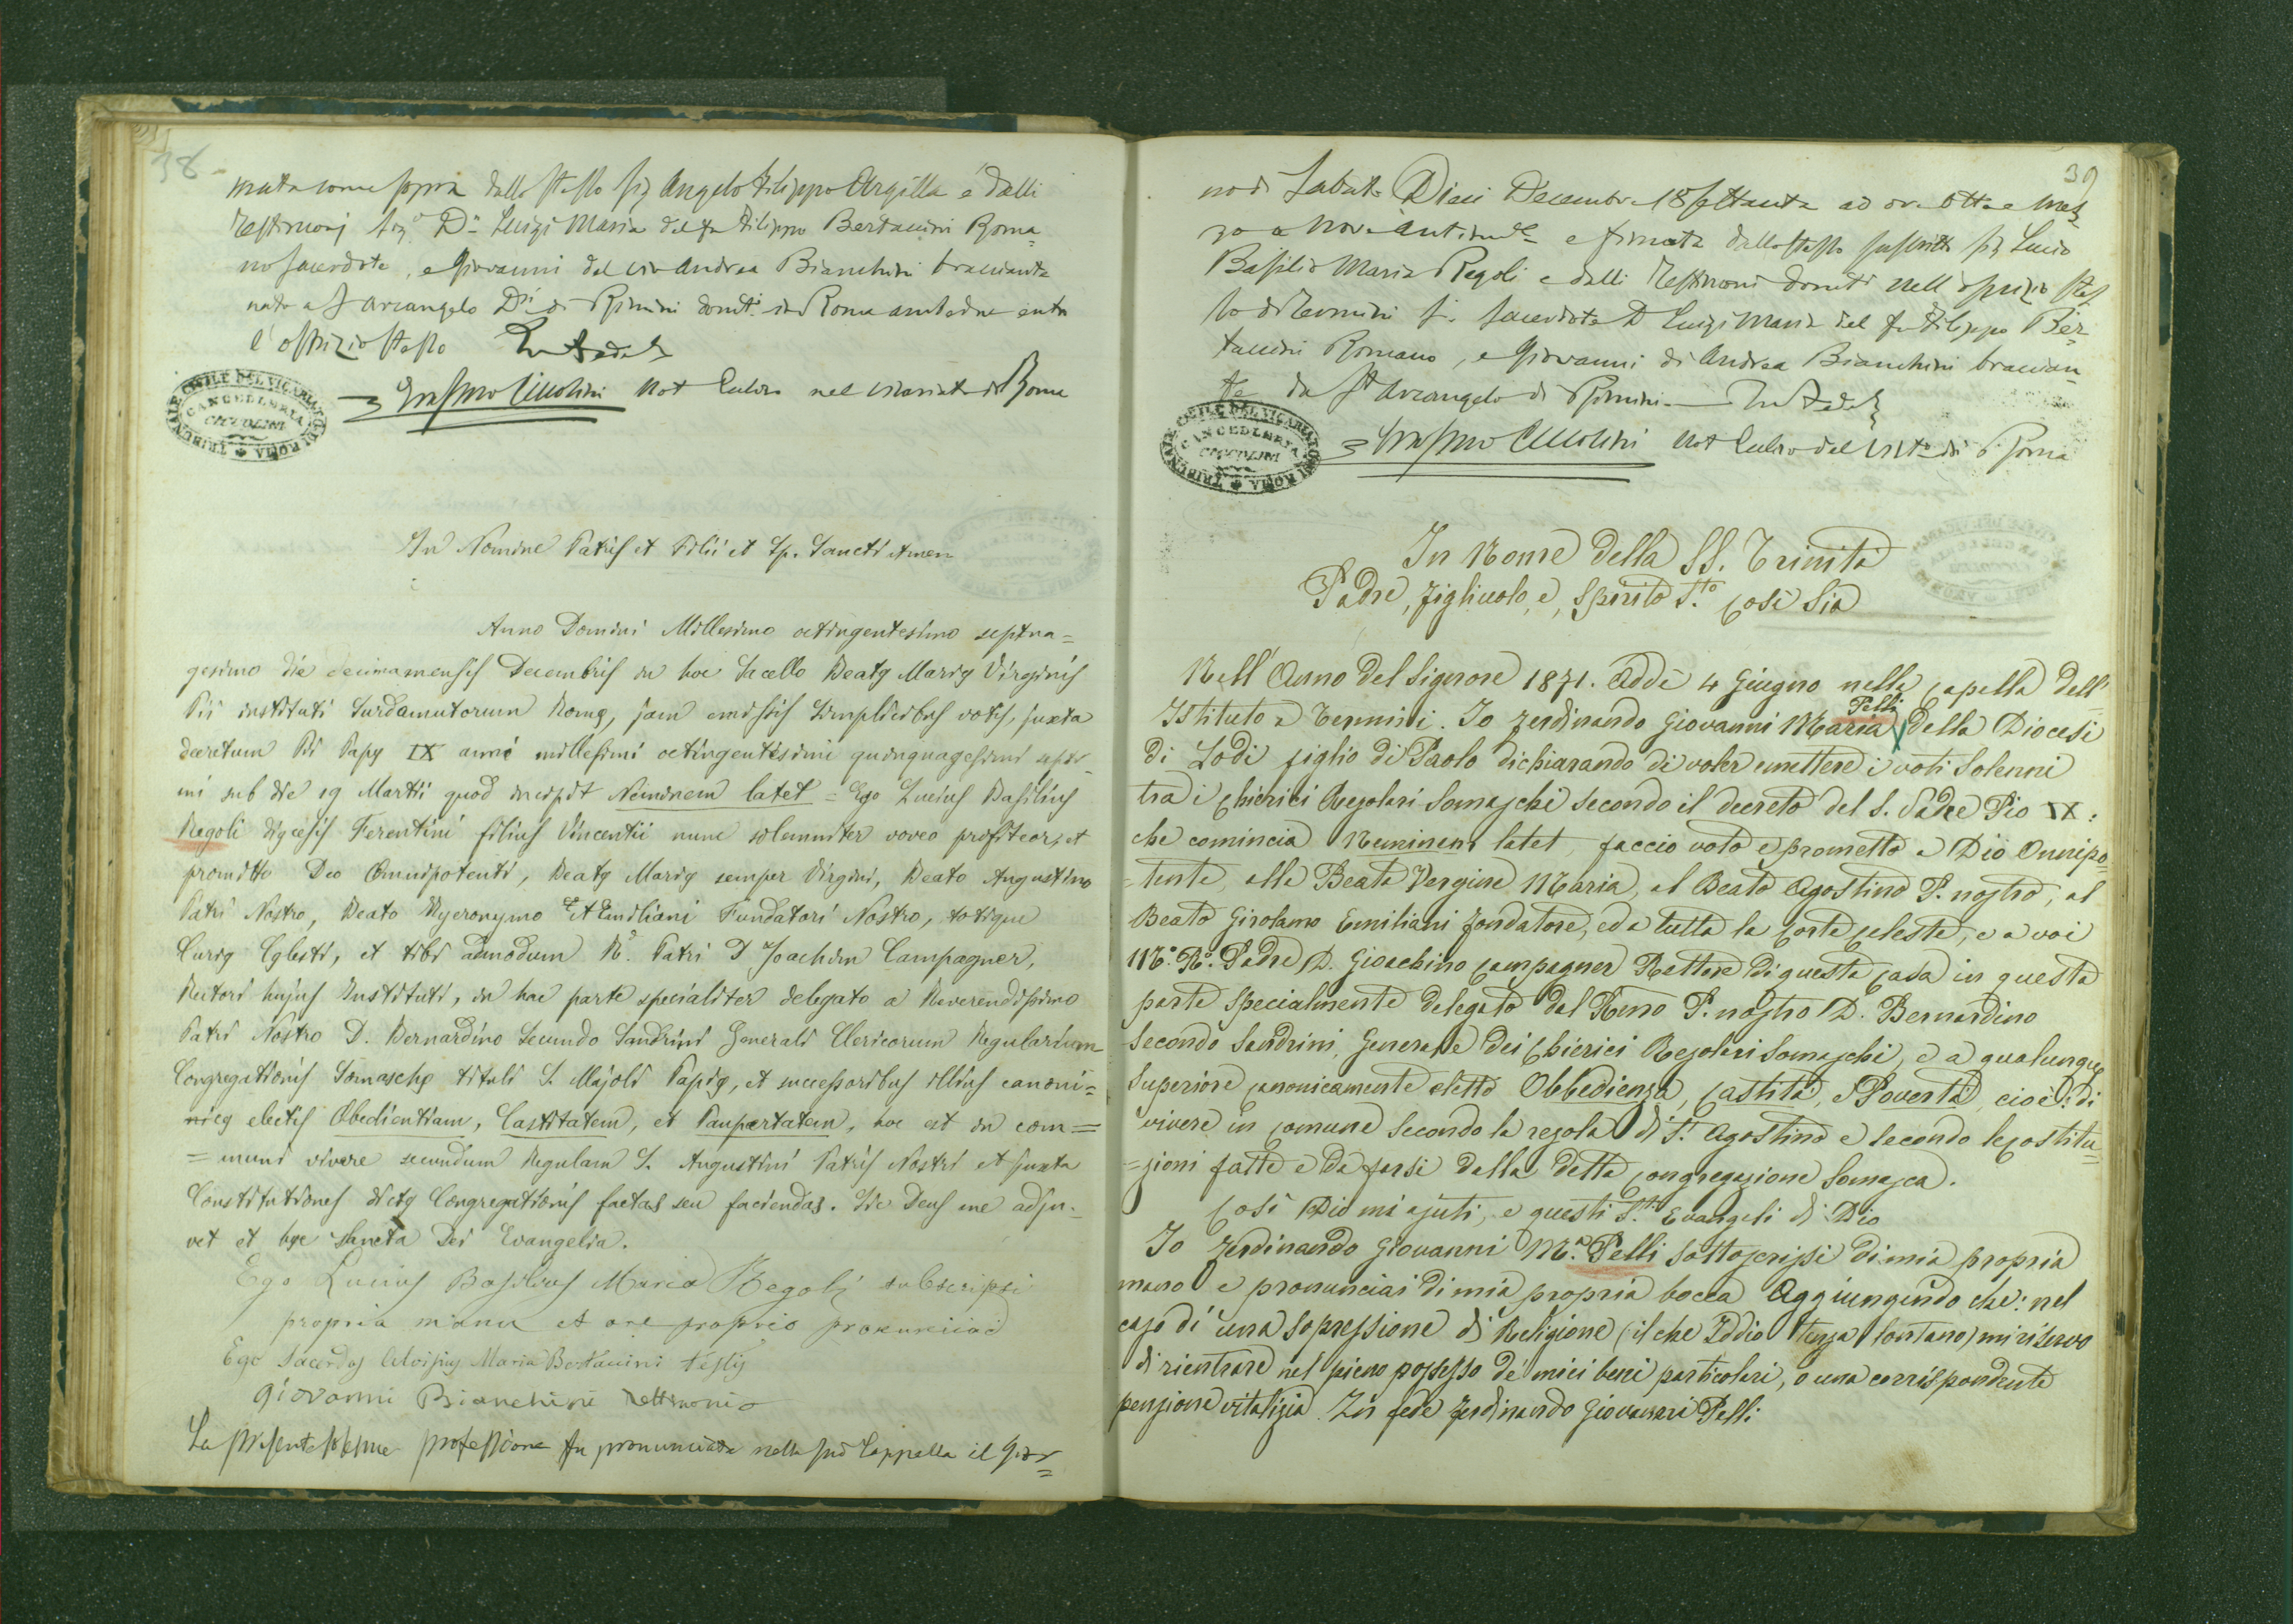 38
mata come sopra dallo stesso Sig Angelo Filippo Argilla e dalli
Testimonj Sig.r D.n Luigi Maria del fu Filippo Bertaccini Roma
no Sacerdote, e Giovanni del vivo Andrea Bianchini bracciante
nato a S Arcangelo D.si di Rimini domti in Roma ambedue entro
l'ospizio stesso In Fede
Erasmo Ciccolini Not Pubbco nel Vicariato di Roma
TRIBUNALE CIVILE DEL VICARIATO DI ROMA
CANCELLERIA
CICCOLINI
In Nomine Patris et Filii et Sp. Sancti Amen
Anno Domini Millesimo octingentesimo septua=
gesimo die decima mensis Decembris in hoc Sacello Beatę Marię Virginis
Pii instituti Surdomutorum Romę, jam emissis simplicibus votis, juxta
decretum Pii Papę IX anni millesimi octingentesimi quinquagesimi septi-
mi sub die 19 Martii quod incipit Neminem latet = Ego Lucius Basilius
Regoli dięcesis Ferentini filius Vincentii nunc solemniter voveo profiteor, et
promitto Deo Omnipotenti, Beatę Marię semper Virgini, Beato Augustino
Patri Nostro, Beato Hyeronymo Ęmiliani Fundatori Nostro, totique
Curię Cęlesti, et tibi admodum R.d Patri D Joachim Campagner,
Rectori hujus Instituti, in hac parte specialiter delegato a Reverendissimo
Patri Nostro D. Bernardino Secundo Sandrini Generali Clericorum Regularium
Congregationis Somaschę tituli S. Majoli Papię, et successoribus illius canoni=
nicę electis Obedientiam, Castitatem, et Paupertatem, hoc est in com=
=muni vivere secundum Regulam S. Augustini Patris Nostri et juxta
Constitutiones dictę Congregationis factas seu faciendas. Sic Deus me adju-
vet et hęc Sancta Dei Evangelia.
Ego Lucius Basilius Maria Regoli subscripsi
propria manu et ore proprio pronunciavi
Ego Sacerdos Aloisius Maria Bertaccini testis
Giovanni Bianchini Testimonio
La presente solenne professione fu pronunciata nella sud Cappella il gior=
39
no di Sabato Dieci Decembre 18settanta ad ore otto e mez
zo a Nove antimede e firmata dallo stesso suscritto Sig Lucio
Basilio Maria Regoli e dalli Testimoni domti nell'ospizio stes
so di Termini S. Sacerdote D Luigi Maria del fu Filippo Ber=
taccini Romano, e Giovanni di Andrea Bianchini braccian
te da St Arcangelo di Rimini — In Fede
Erasmo Ciccolini Not Pubbco del Victo di Roma
TRIBUNALE CIVILE DEL VICARIATO DI ROMA
CANCELLERIA
CICCOLINI
In Nome della SS. Trinità
Padre, Figliuolo, e, Spirito S.to Così Sia
Nell'Anno del Signore 1871. Addì 4 Giugno nella Capella dell'
Istituto a Termini. Io Ferdinando Giovanni Maria Pelli della Diocesi
di Lodi figlio di Paolo dichiarando di voler emettere i voti Solenni
tra i Chierici Regolari Somaschi secondo il decreto del S. Padre Pio IX:
che comincia Neminem latet, faccio voto e prometto a Dio Onnipo=
=tente, alla Beata Vergine Maria, al Beato Agostino P. nostro, al
Beato Girolamo Emiliani fondatore, ed a tutta la Corte Celeste, e a voi
M.o R.o Padre D. Gioachino Campagner Rettore di questa Casa in questa
parte specialmente delegato dal Rmo P. nostro D. Bernardino
Secondo Sandrini, Generale dei Chierici Regolari Somaschi, e a qualunque
Superiore Canonicamente eletto Obbedienza, Castità, e Povertà, cioè: di
vivere in comune secondo la regola di S. Agostino e secondo le Costitu=
=zioni fatte e da farsi dalla detta Congregazione Somasca.
Così Dio mi ajuti, e questi S.ti Evangeli di Dio
Io Ferdinando Giovanni M.a Pelli sottoscrissi di mia propria
mano e pronunciai di mia propria bocca Aggiungendo che: nel
caso di una sopressione di Religione (il che Iddio tenga lontano) mi riservo
di rientrare nel pieno possesso de' miei beni particolari, o una corrispondente
pensione vitalizia. In fede Ferdinando Giovanni Pelli